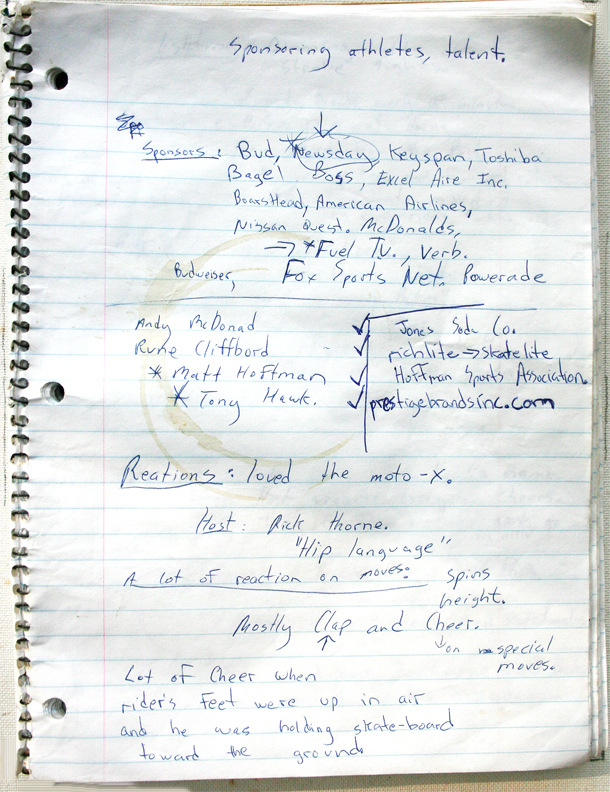 Sponsoring athletes, talent.
Sponsors: Bud, *Newsday, Keyspan, Toshiba
Bagel Boss, Excel Aire Inc.
BoarsHead, American Airlines,
Nissan Quest. McDonalds,
→ *Fuel Tv., Verb.
Budweiser, Fox Sports Net. Powerade
Andy McDonad
Rune Cliffbord
* Matt Hoffman
* Tony Hawk.
✓ Jones Soda Co.
✓ richlite → skatelite
✓ Hoffman Sports Association.
✓ prestigebrandsinc.com
Reations: loved the moto-x.
Host: Rick Thorne.
"Hip language"
A lot of reaction on moves: spins
height.
Mostly Clap and Cheer.
↑ ↓ on special
moves.
Lot of Cheer when
rider's feet were up in air
and he was holding skate-board
toward the ground